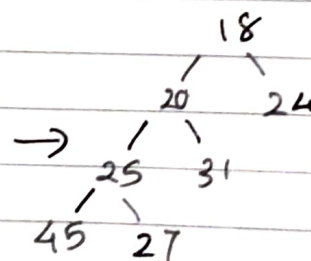 18
20 24
→ 25 31
45 27